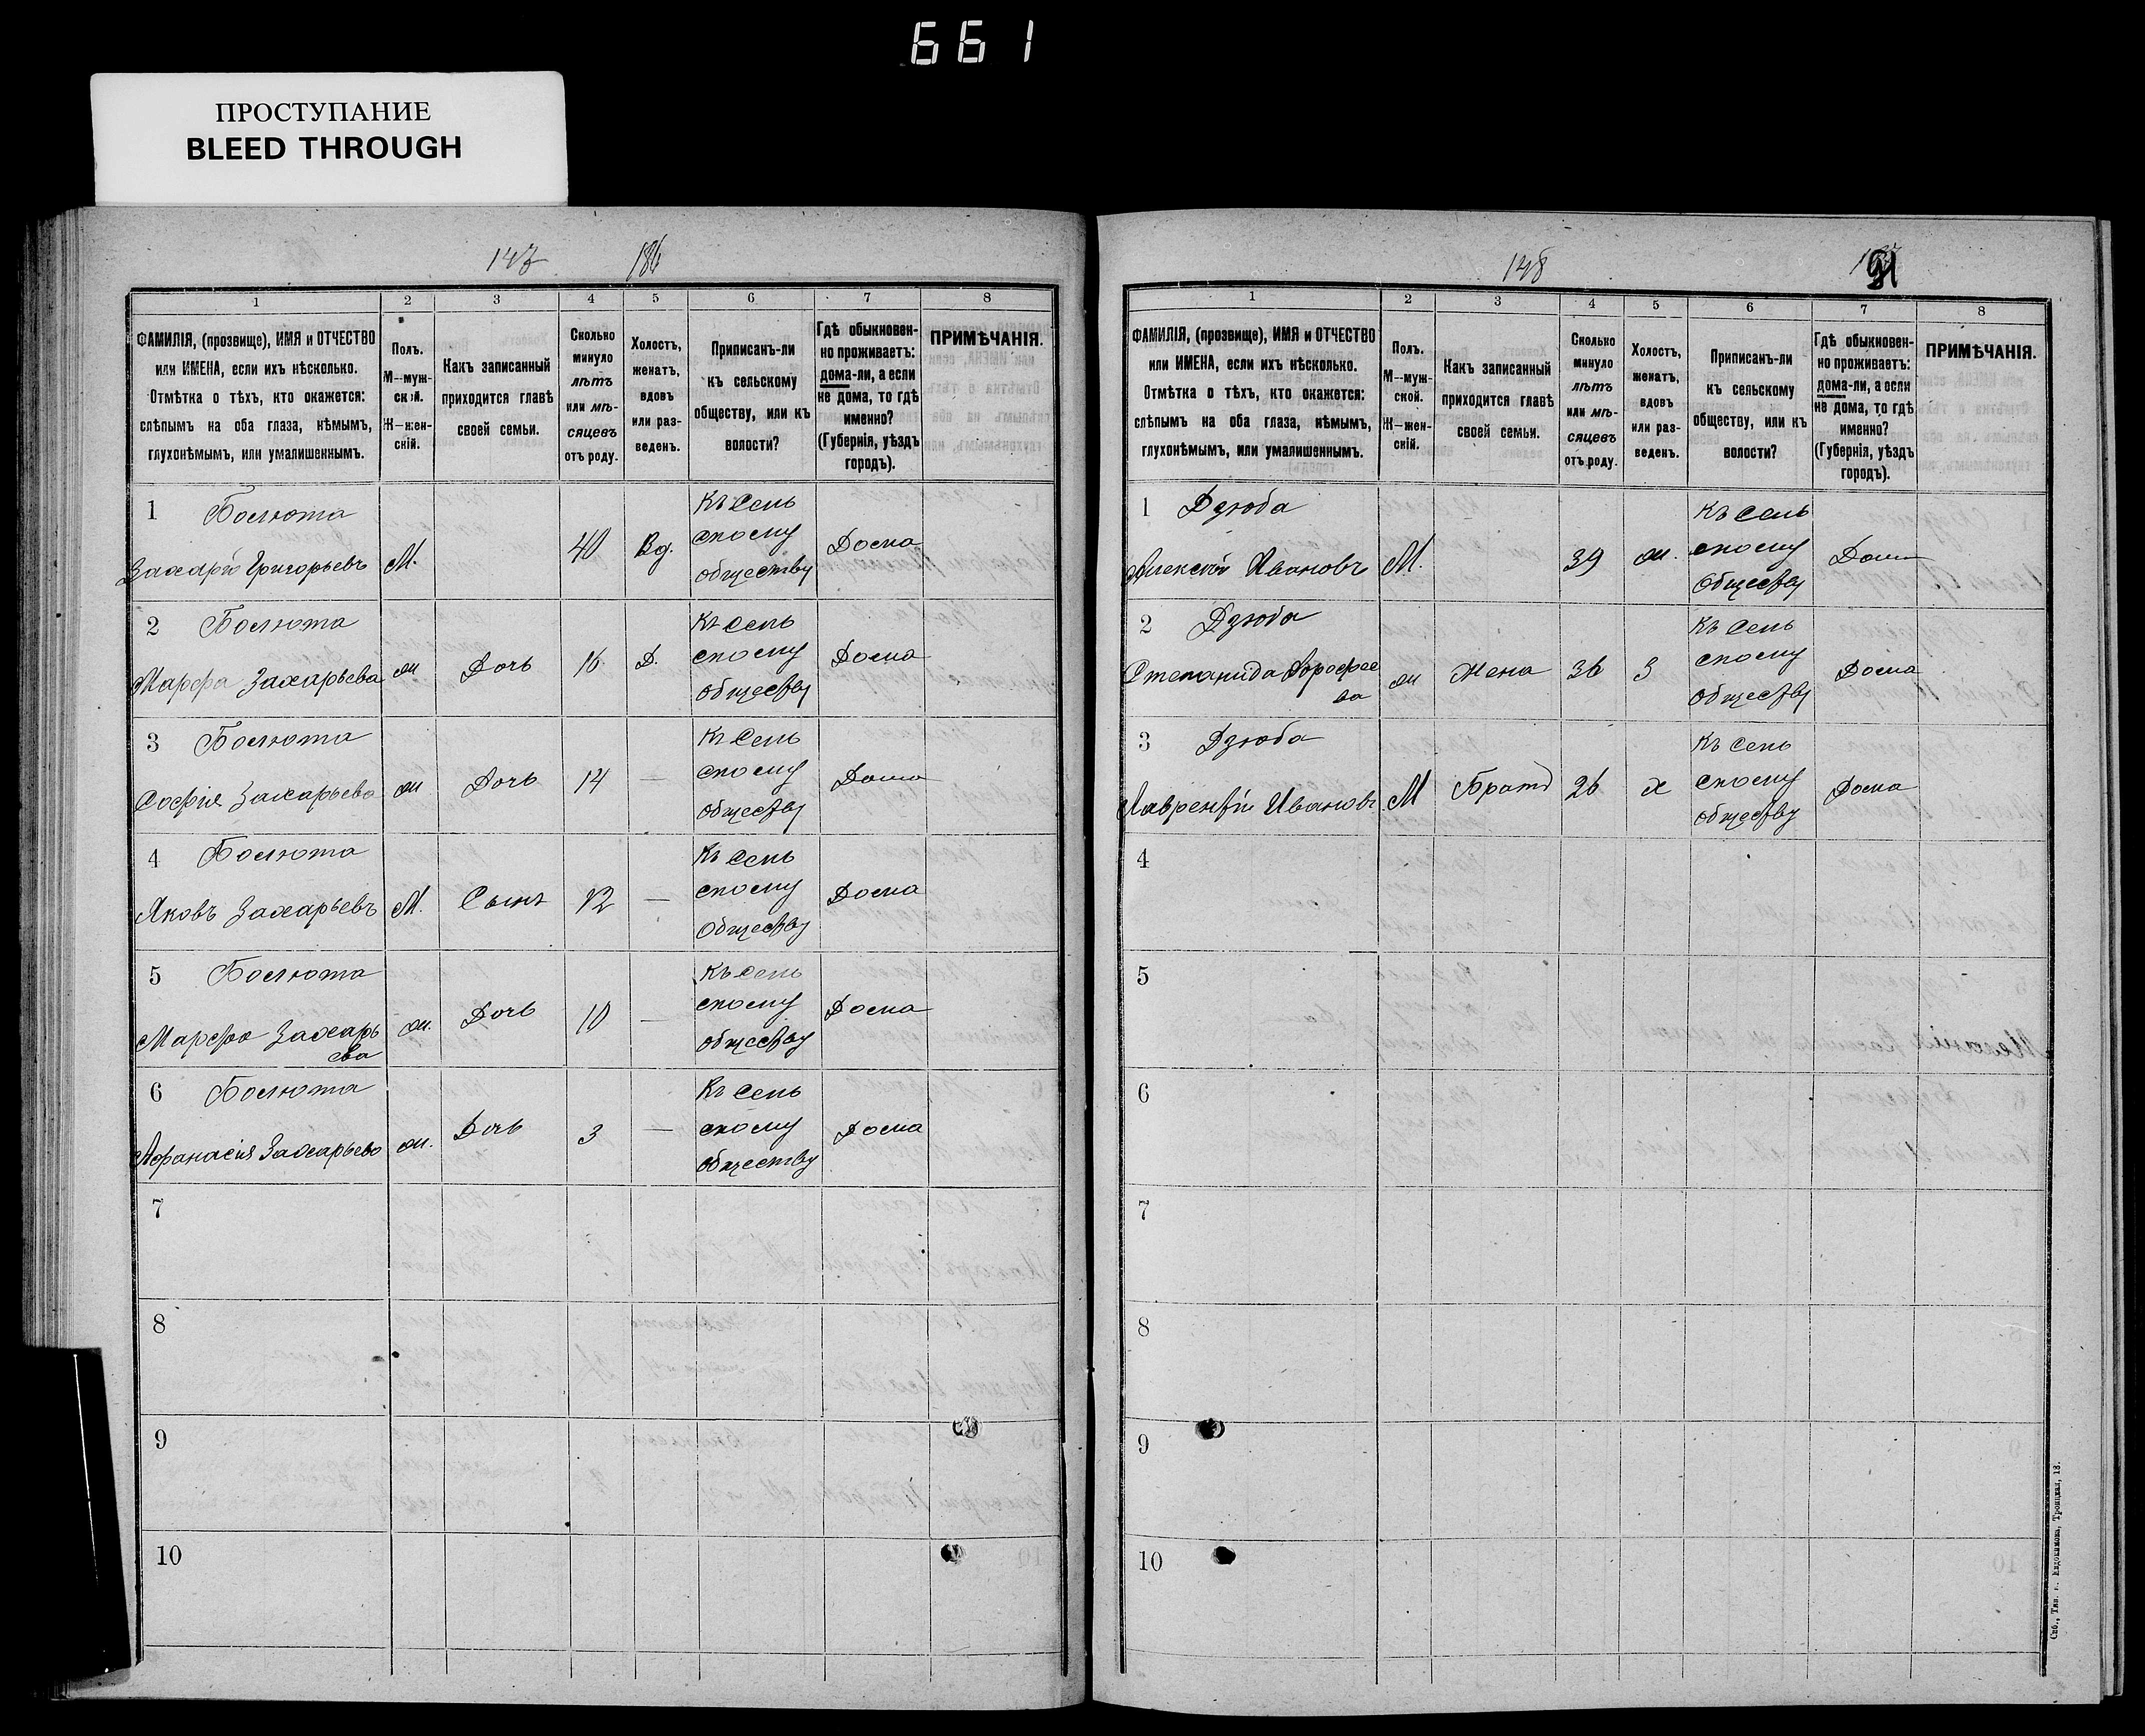 661
ПРОСТУПАНИЕ
BLEED THROUGH
147 186
1 2 3 4 5 6 7 8
ФАМИЛІЯ, (прозвище), ИМЯ и ОТЧЕСТВО
или ИМЕНА, если ихъ нѣсколько.
Отмѣтка о тѣхъ, кто окажется:
слѣпымъ на оба глаза, нѣмымъ,
глухонѣмымъ, или умалишеннымъ.
Полъ.
М—муж-
ской.
Ж—жен-
скій.
Какъ записанный
приходится главѣ
своей семьи.
Сколько
минуло
лѣтъ
или мѣ-
сяцевъ
отъ роду.
Холостъ,
женатъ,
вдовъ
или раз-
веденъ.
Приписанъ-ли
къ сельскому
обществу, или къ
волости?
Гдѣ обыкновен-
но проживаетъ:
дома-ли, а если
не дома, то гдѣ
именно?
(Губернія, уѣздъ
городъ).
ПРИМѢЧАНІЯ.
1 Болюта
Захарій Григорьевъ М. 40 Вд. Къ сель
скому
обществу Дома
2 Болюта
Марфа Захарьева ж Дочь 16 Д. Къ сель
скому
обществу Дома
3 Болюта
Софія Захарьева ж Дочь 14 — Къ сель
скому
обществу Дома
4 Болюта
Яковъ Захарьевъ М. Сынъ 12 — Къ сель
скому
обществу Дома
5 Болюта
Марфа Захарь
ева ж. Дочь 10 — Къ сель
скому
обществу Дома
6 Болюта
Афанасія Захарьева ж. Дочь 3 — Къ сель
скому
обществу Дома
7
8
9
10
148
1 2 3 4 5 6 7 8
ФАМИЛІЯ, (прозвище), ИМЯ и ОТЧЕСТВО
или ИМЕНА, если ихъ нѣсколько.
Отмѣтка о тѣхъ, кто окажется:
слѣпымъ на оба глаза, нѣмымъ,
глухонѣмымъ, или умалишеннымъ.
Полъ.
М—муж-
ской.
Ж—жен-
скій.
Какъ записанный
приходится главѣ
своей семьи.
Сколько
минуло
лѣтъ
или мѣ-
сяцевъ
отъ роду.
Холостъ,
женатъ,
вдовъ
или раз-
веденъ.
Приписанъ-ли
къ сельскому
обществу, или къ
волости?
Гдѣ обыкновен-
но проживаетъ:
дома-ли, а если
не дома, то гдѣ
именно?
(Губернія, уѣздъ
городъ).
ПРИМѢЧАНІЯ.
1 Дзюба
Алексѣй Ивановъ М. 39 ж. Къ сель
скому
обществу Дома
2 Дзюба
Степанида Дорофее
ва ж Жена 36 З Къ сель
скому
обществу Дома
3 Дзюба
Лаврентій Ивановъ М Братъ 26 х Къ сель
скому
обществу Дома
4
5
6
7
8
9
10
Спб., Тип. Евдокимова, Троицкая, 18.